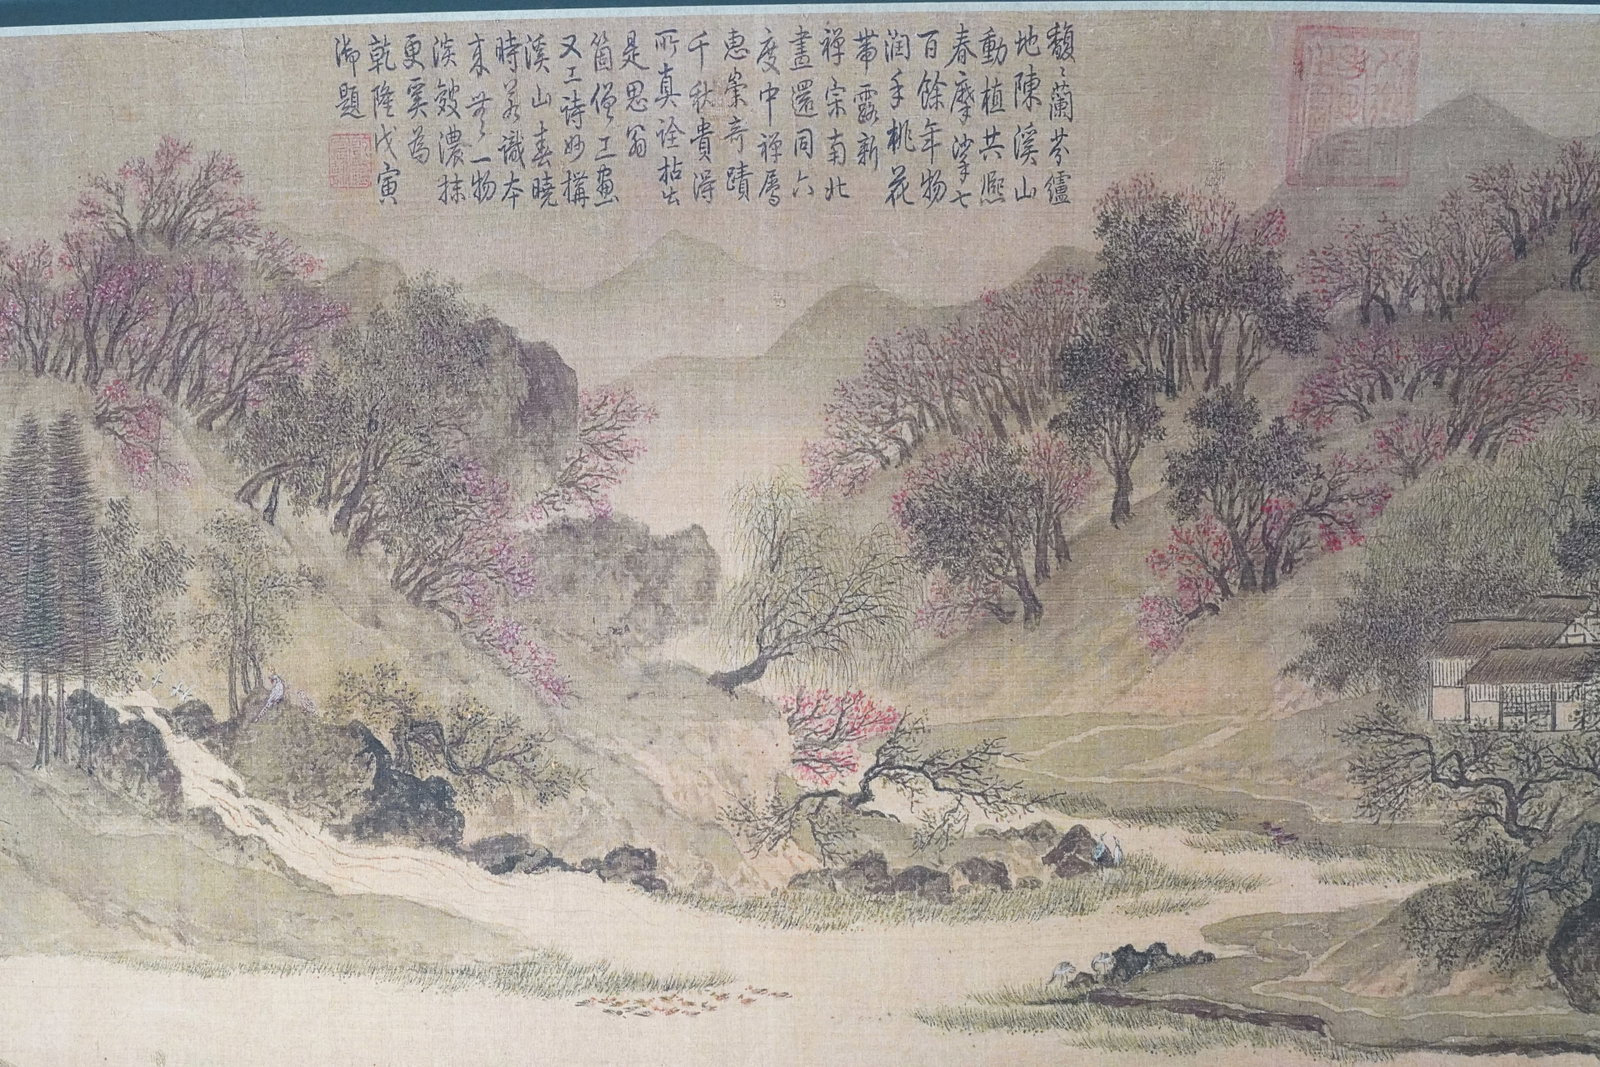 馥馥蘭芬繡
地陳溪山
動植共熙
春摩挲七
百餘年物
潤手桃花
帶露新
禪宗南北
畫還同六
度中禪屬
惠崇奇蹟
千秋貴得
所真詮拈出
是思翁
箇僧工畫
又工詩妙構
溪山春曉
時若識本
來無一物
淡皴濃抹
更奚為
乾隆戊寅
御題